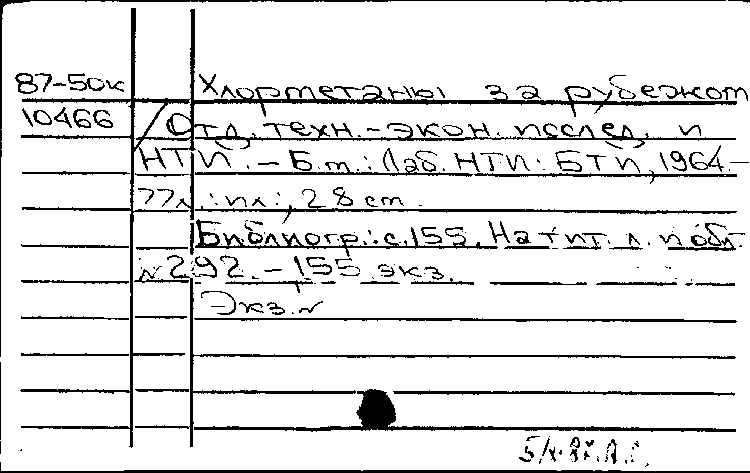 87-50к Хлорметаны за рубежом
10466 /Отд. техн.-экон. исслед. и
НТИ.-Б.м.: Лаб. НТИ: БТИ, 1964.-
77л.: ил.; 28 см.
Библиогр.: с.155. На тит. л. и обл.
№292.-155 экз.
Экз. №